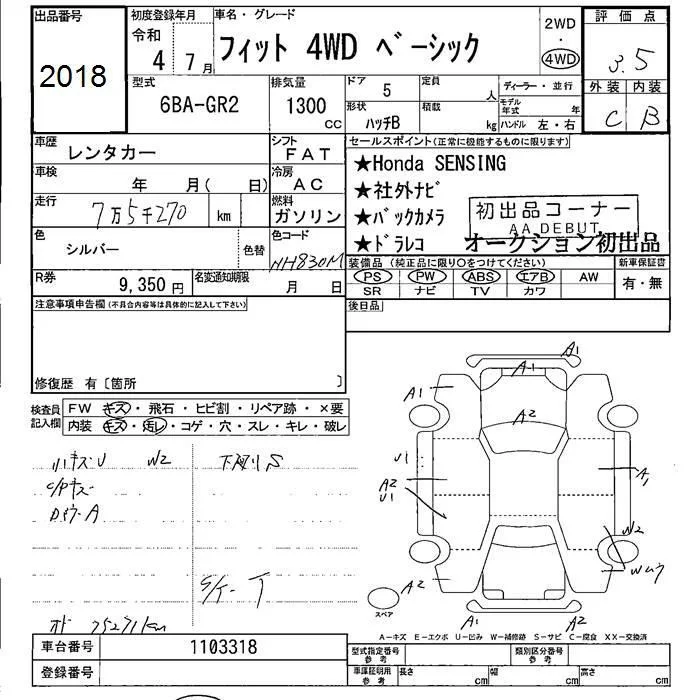 出品番号
2018
初度登録年月
令和
4 7月
車名・グレード
フィット 4WD ベーシック
2WD
・
4WD
評価点
3.5
外装 内装
C B
型式
6BA-GR2
排気量
1300
cc
ドア
5
定員
人
形状
ハッチB
積載
kg
ディーラー・並行
モデル年式
年
ハンドル 左・右
車歴
レンタカー
シフト
FAT
車検
年 月( 日)
冷房
AC
走行
7万5千270
km
燃料
ガソリン
色
シルバー
色替
色コード
NH830M
R券
9,350 円
名変通知期限
月 日
セールスポイント(正常に機能するものに限ります)
★Honda SENSING
★社外ナビ
★バックカメラ
★ドラレコ
初出品コーナー
AA DEBUT
オークション初出品
装備品(純正品に限り○をつけてください)
新車保証書
PS PW ABS エアB AW
SR ナビ TV カワ
有・無
注意事項申告欄(不具合内容等は具体的に記入して下さい)
後日品
修復歴 有〔箇所 〕
検査員
記入欄
FW キズ・飛石・ヒビ割・リペア跡・×要
内装 キズ・汚レ・コゲ・穴・スレ・キレ・破レ
小キズU W2
下廻りS
A1
A1
A1
A2
U1
A2
U1
A1
W2
A2
A1
A2
スペア
A-キズ E-エクボ U-凹み W-補修跡 S-サビ C-腐食 XX-交換済
75271km
車台番号
1103318
登録番号
型式指定番号
参考
類別区分番号
参考
車庫証明用
参考
長さ
cm
幅
cm
高さ
cm